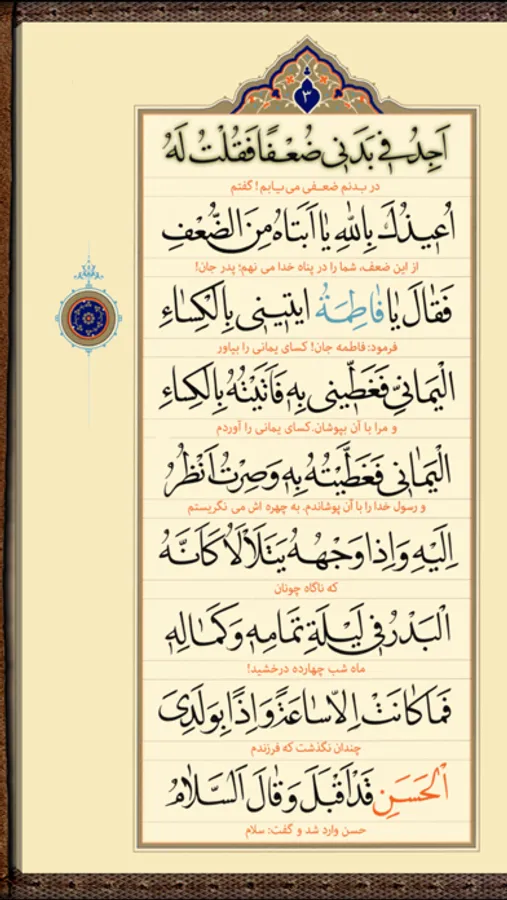 ۳
اَجِدُ فِی بَدَنِی ضُعْفًا فَقُلْتُ لَهُ
در بدنم ضعـفی می‌یـابم! گفتم
اُعِیذُکَ بِاللّٰهِ یٰا اَبَتٰاهُ مِنَ الضُّعْفِ
از این ضعف، شما را در پناه خدا می نهم؛ پدر جان!
فَقٰالَ یٰا فٰاطِمَةُ ایتِینِی بِالْکِسٰاءِ
فرمود: فاطمه جان! کسای یمانی را بیاور
الْیَمٰانِیِّ فَغَطِّینِی بِهِ فَاَتَیْتُهُ بِالْکِسٰاءِ
و مرا با آن بپوشان.کسای یمانی را آوردم
الْیَمٰانِی فَغَطَّیْتُهُ بِهِ وَصِرْتُ اَنْظُرُ
و رسول خدا را با آن پوشاندم. به چهره اش می نگریستم
اِلَیْهِ وَاِذٰا وَجْهُهُ یَتَلَأْلَأُ کَاَنَّهُ
که ناگاه چونان
الْبَدْرُ فِی لَیْلَةِ تَمٰامِهِ وَکَمٰالِهِ
ماه شب چهارده درخشید!
فَمٰا کٰانَتْ اِلّٰا سٰاعَةً وَاِذًا بِوَلَدِیَ
چندان نگذشت که فرزندم
الْحَسَنِ قَدْ اَقْبَلَ وَقٰالَ السَّلٰامُ
حسن وارد شد و گفت: سلام